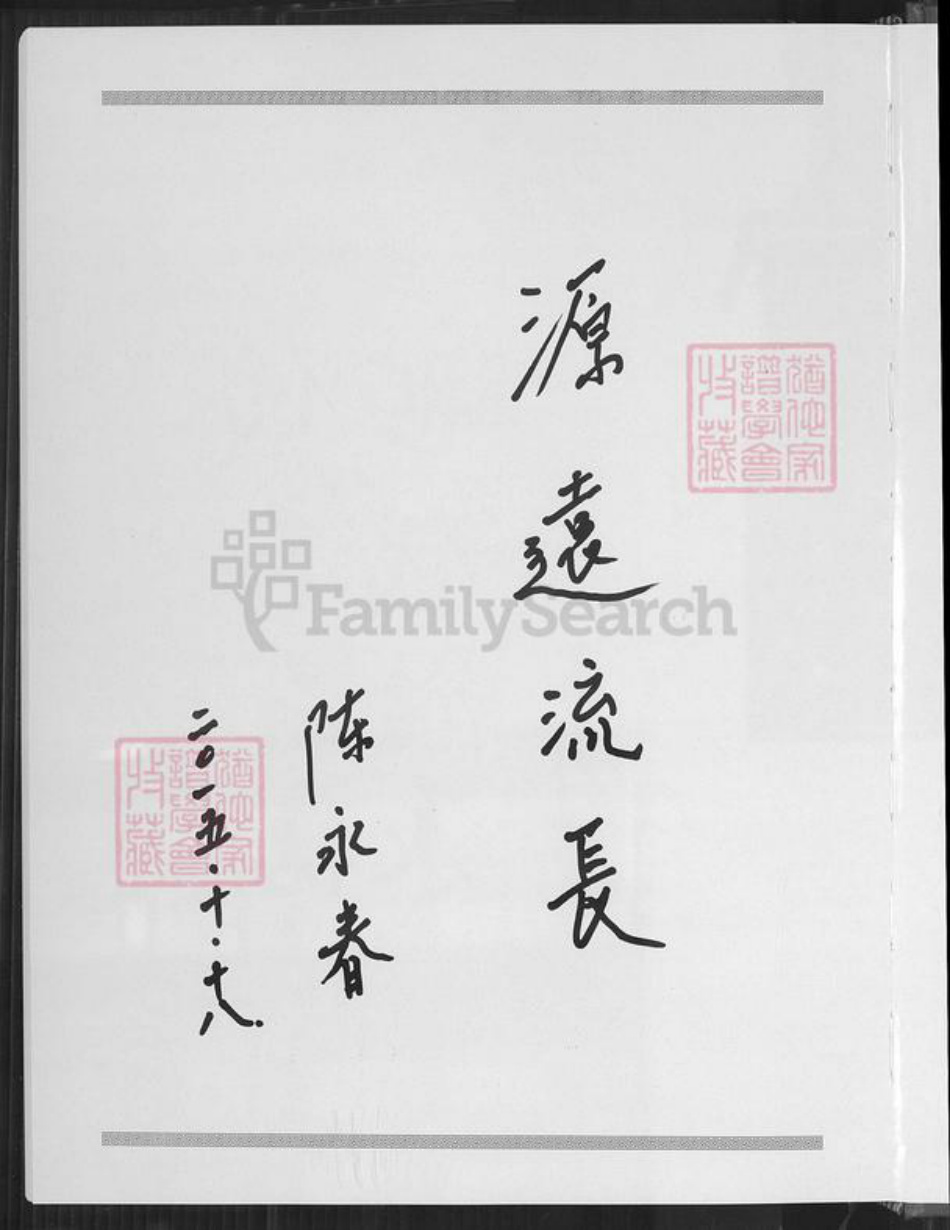 源遠流長
陈永春
二〇一五.十.十八.
猶他家
譜學會
收藏
猶他家
譜學會
收藏
FamilySearch